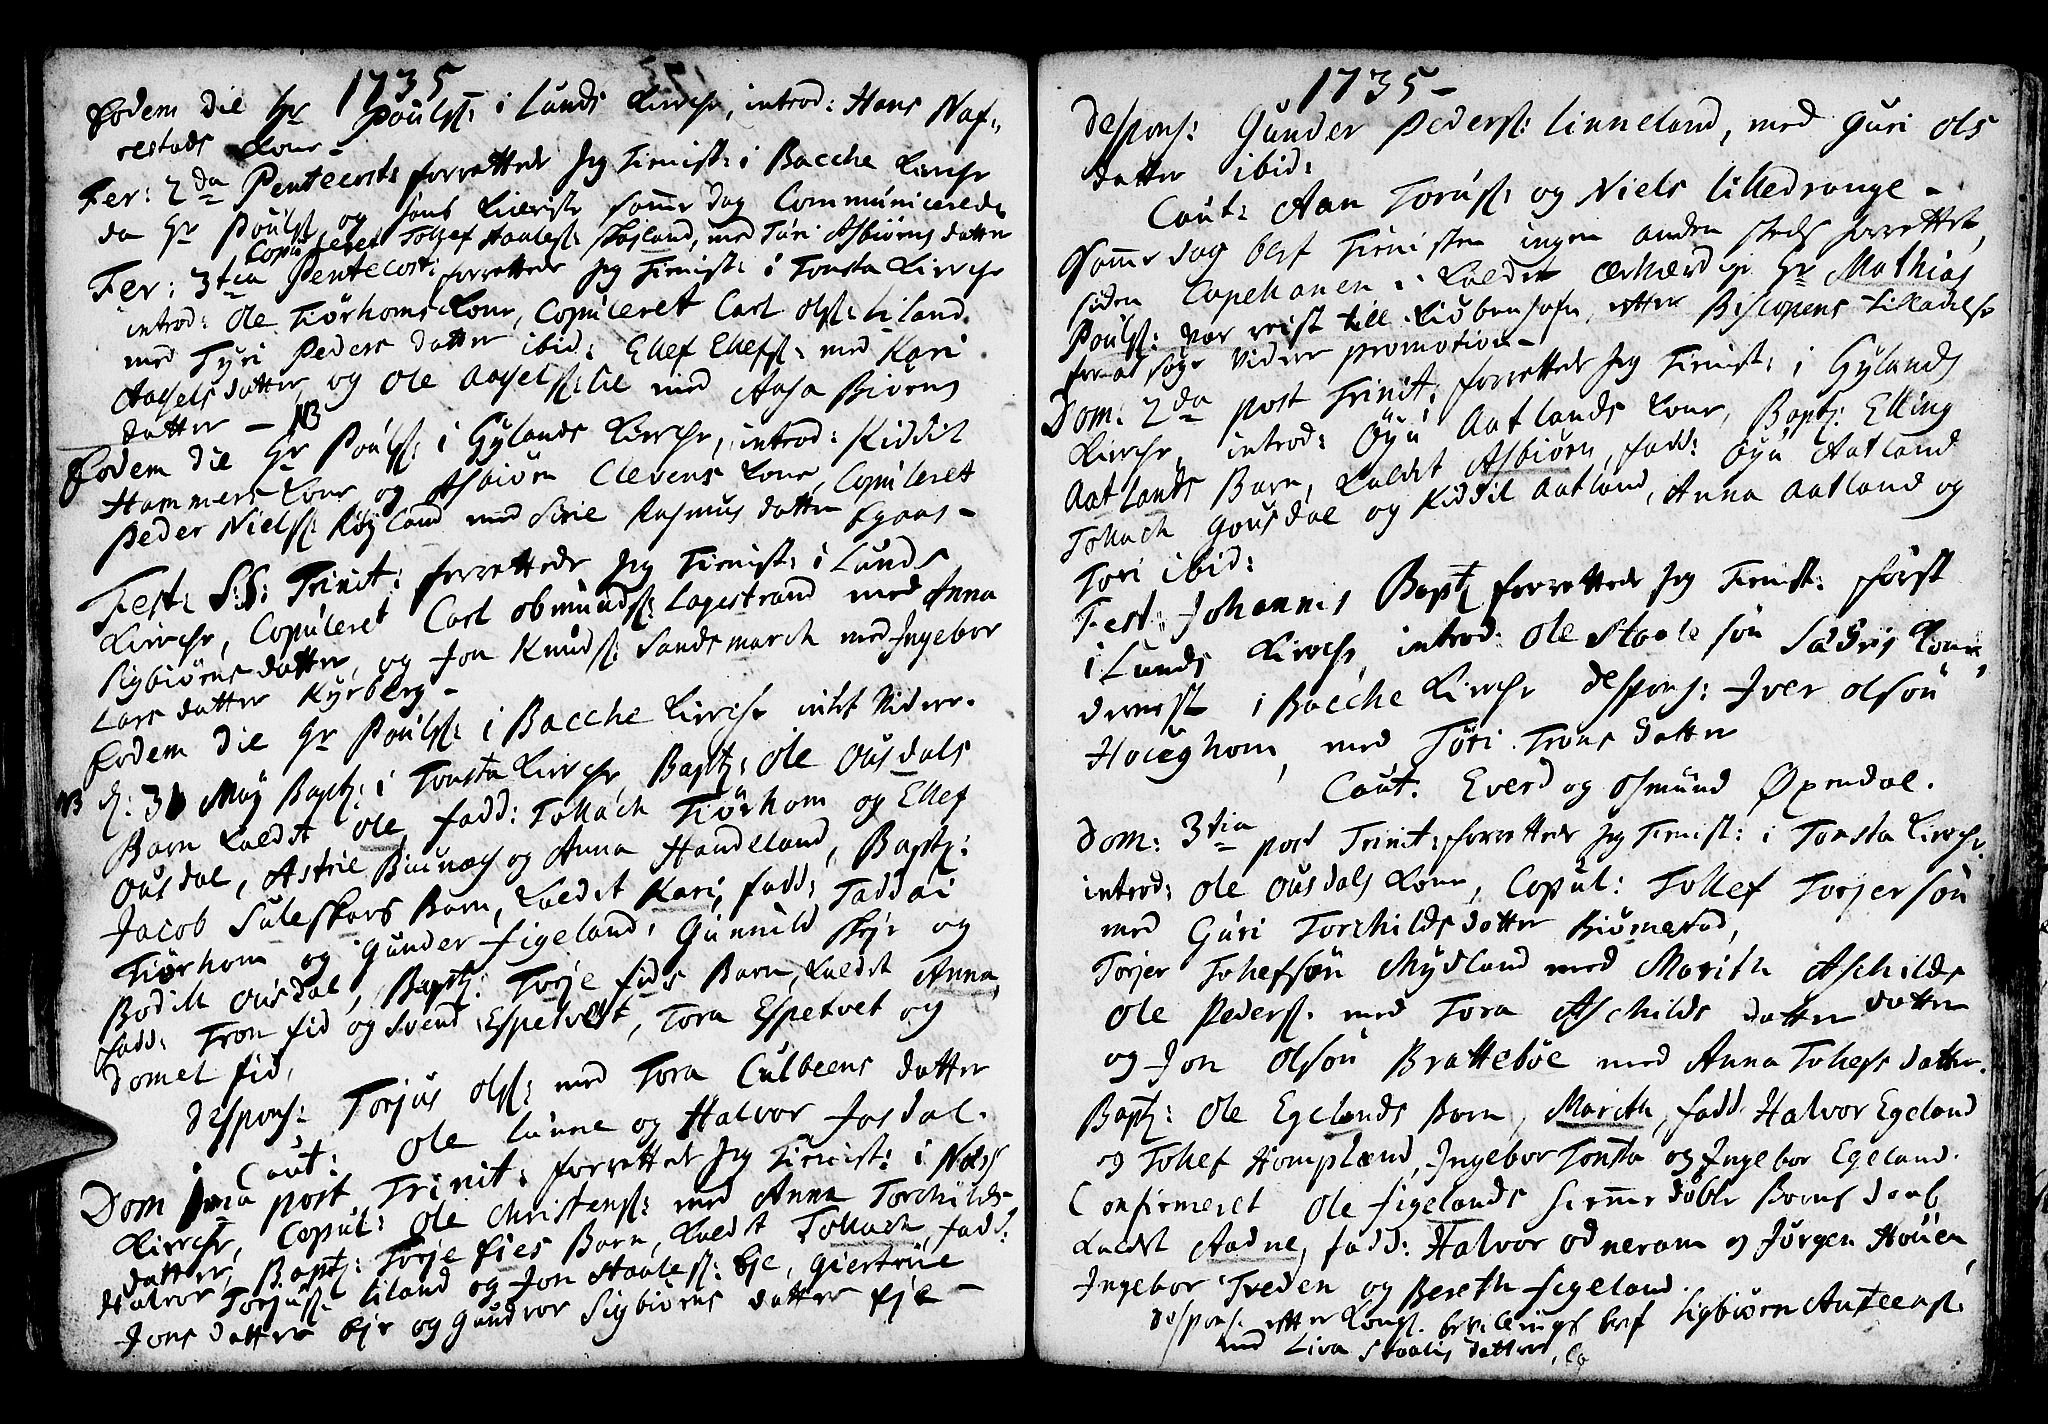 1735
Eodem die Hr Poulss: i Lunds Kirche, introd: Hans Naf-
restads Kone -
Fer: 2da Pentecost: forrettede Jeg Tienist: i Bacche Kirche
da Hr Poulss og hans Kiæriste samme dag Communicerede
Copuleret Tollef Staaless: Skojland, med Turi Asbiørns datter
Fer: 3tia Pentecost: forrettede Jeg Tienist: i Tonsta Kirche
introd: Ole Tiørhoms Kone, Copuleret Carl Olss: Liland
med Tyri Peders datter ibid: Ellef Ellefss: med Kari
Aasels datter, og Ole Aaselss: Lie med Aasa Biørns
datter - NB
Eodem die Hr Poulss: i Gylands Kirche, introd: Kiddil
Hammers Kone og Asbiørn Clevens Kone, Copuleret
Peder Nielss: Røjland med Sirie Rasmus datter Egaas -
Fest: S:S: Trinit: forrettede Jeg Tienist: i Lunds
Kirche, Copuleret Carl Obmundss: Lagestrand med Anna
Sigbiørns datter, og Jon Knudss: Sandsmarch med Ingebor
Lars datter Kyrberg -
Eodem die Hr Poulss: i Bacche Kirche intet Videre.
NB d: 31 Maij Bapt: i Tonsta Kirche Bapt: Ole Ousdals
Barn Kaldet Ole, fadd: Tollach Tiørhom og Ellef
Ousdal, Astrie Biunæs og Anna Handeland, Bapt:
Jacob Suleskars Barn, Kaldet Kari, fadd: Taddæi
Tiørhom og Gunder Figeland, Gunnild Skeje og
Bodil Ousdal, Bapt: Torje Fids Barn, Kaldet Anna,
fadd: Tron Fid og Svend Espetvet, Tora Espetvet og
Domet Fid,
Despons: Torjus Olss: med Tora Culbeens datter
Caut: Ole Lunne og Halvor Josdal.
Dom 1ma post Trinit: forrettede Jeg Tienist: i Næss
Kirche, Copul: Ole Christenss: med Anna Torchilds-
datter, Bapt: Torje Eies Barn, Kaldet Tollach, fadd:
Halvor Torjuss: Liland og Jon Staaless: Eje, Giertrue
Jons datter Eje og Gundvor Sigbiørns datter Eje -
1735 -
Despons: Gunder Pederss: Linneland, med Guri Ols
datter ibid:
Caut: Aan Toruss: og Niels Lilledrange -
Samme dag blef Tienisten ingen anden steds forrettet,
siden Capellanen i Kaldet ærværdige Hr Mathias
Poulss: var reist till Kiøbenhafn, efter Biscopens tilladelse
for at søge videre promotion -
Dom: 2da post Trinit: forrettede Jeg Tienist: i Gylands
Kirche, introd: Øyu Aatlands Kone, Bapt: Elling
Aatlands Barn, Kaldet Asbiørn, fadd: Øyu Aatland
Tollach Gousdal og Kiddil Aatland, Anna Aatland og
Tori ibid:
Fest: Johannis Bapt forrettede Jeg Tienist: først
i Lunds Kirche, introd: Ole Staale søn Kone,
dernest i Bacche Kirche despons: Iver Olsøn
Houghom, med Tøri Trons datter
Caut. Everd og Osmund Øxendal.
Dom: 3tia post Trinit: forrettede Jeg Tienist: i Tonsta Kirche
introd: Ole Ousdals Kone, Copul: Tollef Torjersøn
med Guri Torchilds datter Biørnestad,
Torjer Tollefsøn Mydland med Marith Aschilds
datter
Ole Pederss: med Tora Aschilds datter
og Jon Olsøn Brattebøe med Anna Tollefs datter.
Bapt: Ole Egelands Barn, Marith, fadd: Halvor Egeland
og Tollef Homplænd, Ingebor Tonsta og Ingebor Egeland.
Confirmeret Ole Figelands hiemme døbte Barns daab
Kaldet Aadne, fadd: Halvor Odneram og Jørgen Houen,
Ingebor Tveden og Bereth Figeland.
Despons: efter Kongl. bevillings bref Sigbiørn Anteenss:
med Liva Staales datter,